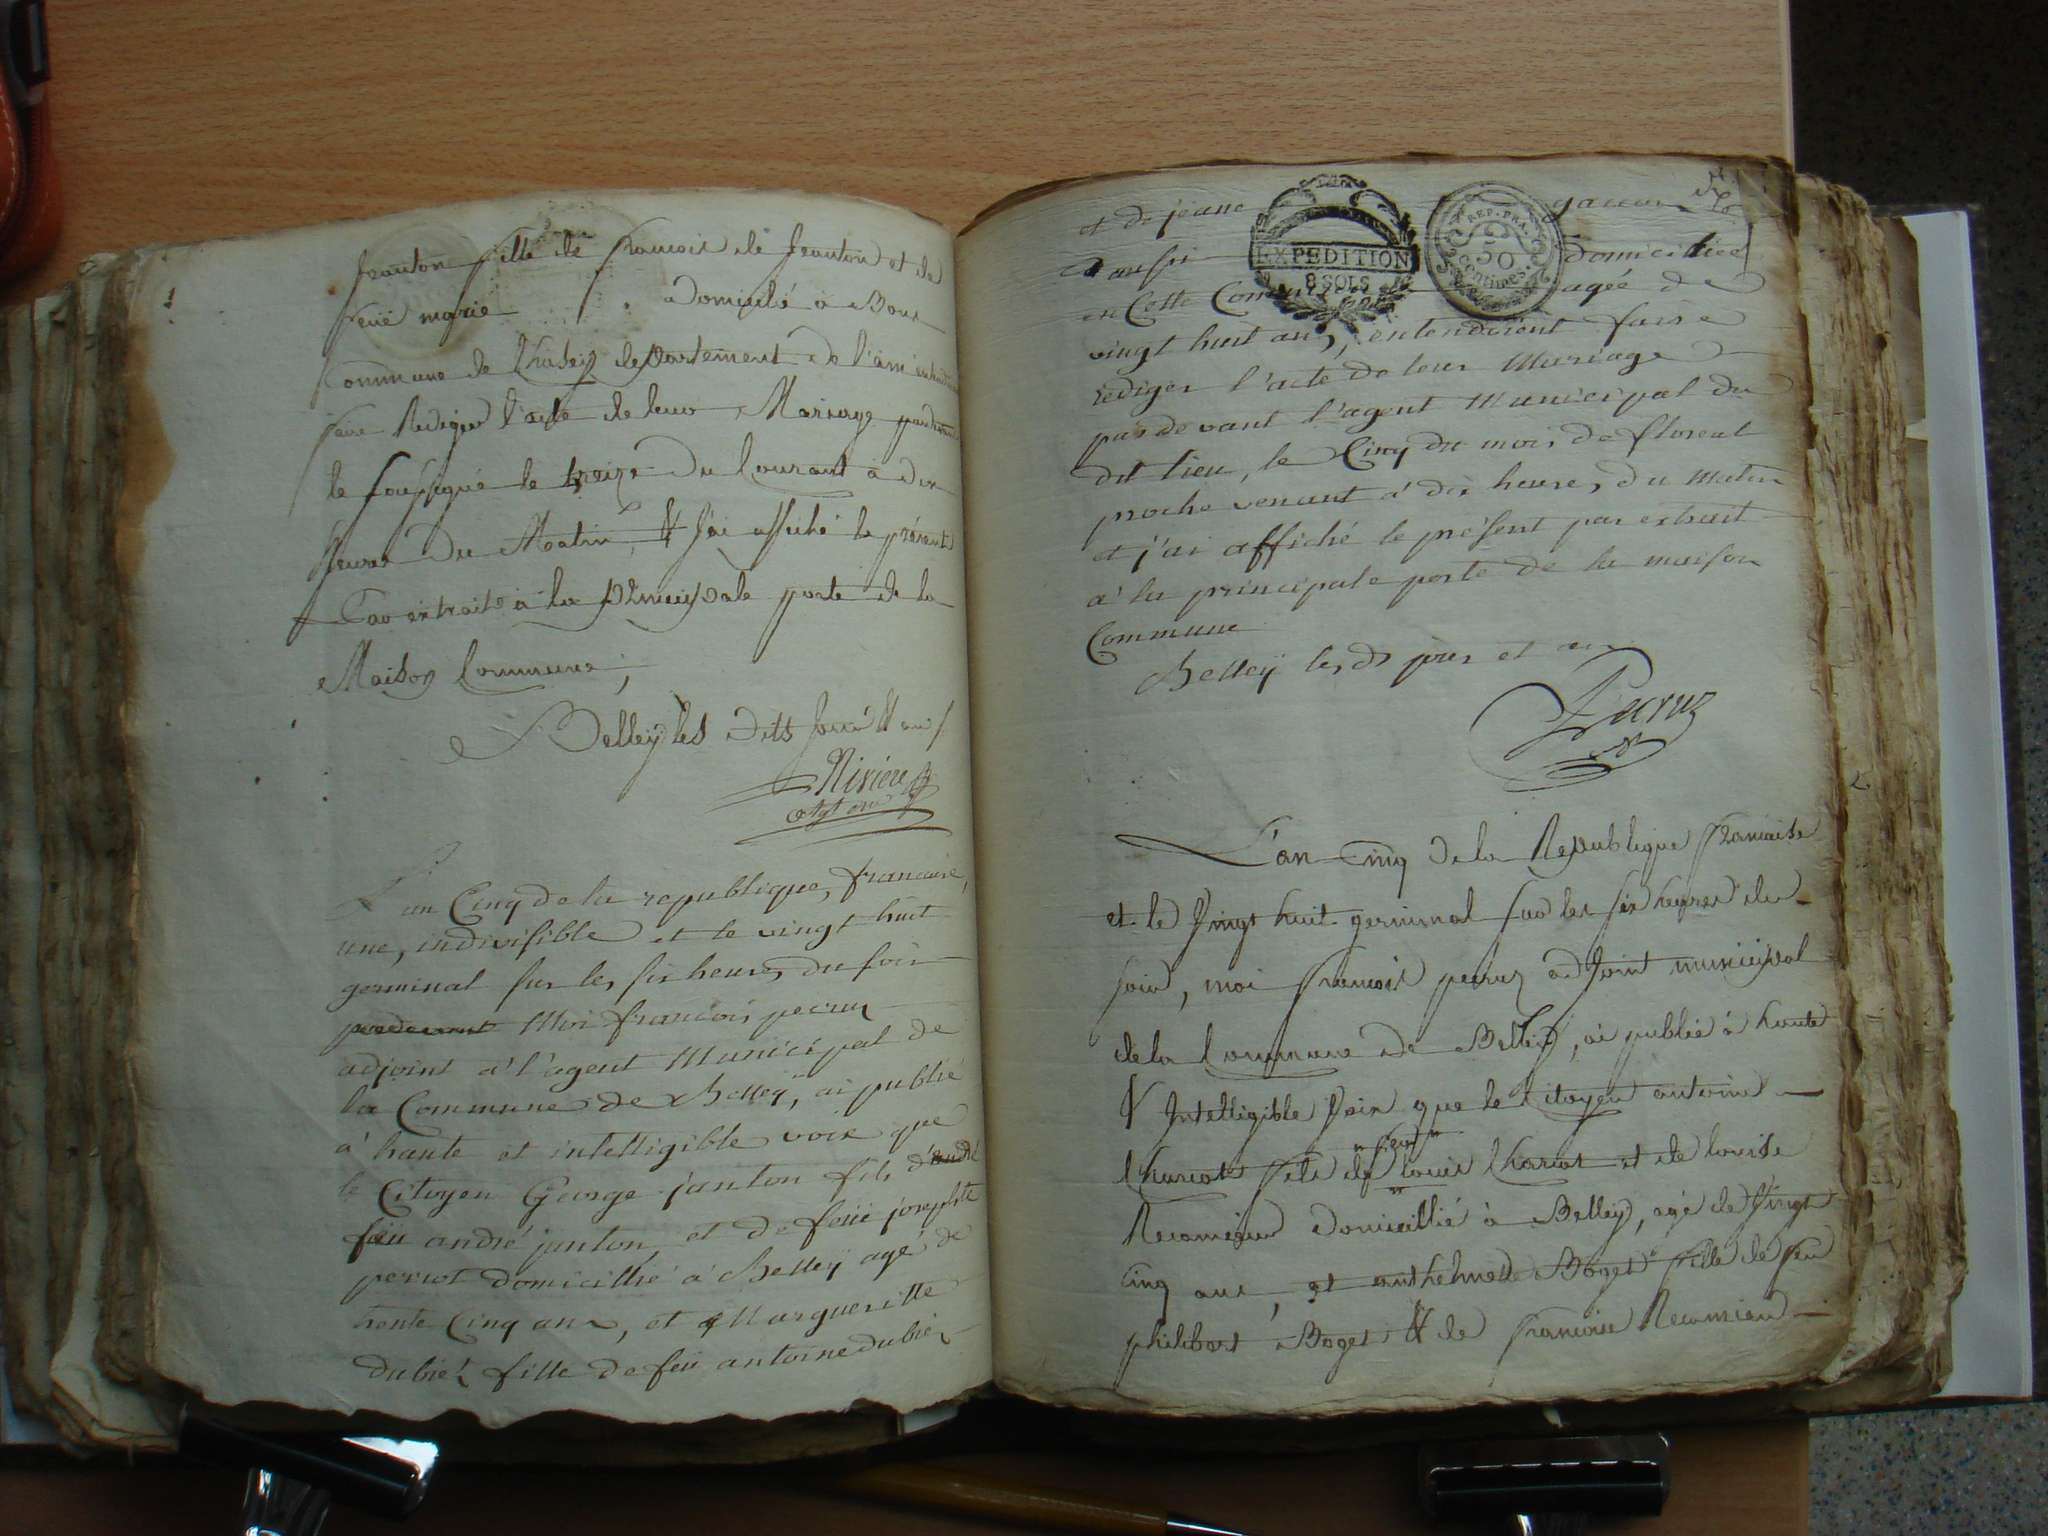 Jeanton fille de francois de Jeanton et de
feüe marie domicilié à Bons
Commune de Chasey departement de l'ain
faire Rediger l'acte de leur Mariage pardevant
le soussigné le treize du Courant à dix
heures du Matin, & J'ai affiché le présent
Par extrait à la principale porte de la
Maison Commune,
Belleÿ les dits Jour & an
Riviere
Agt
L'an Cinq de la republique, francaise,
une, indivisible et le vingt huit
germinal sur les six heures du soir
Moi francois pecruz
adjoint à l'agent Municipal de
la Commune de Belleÿ, ai publié
à haute et intelligible voix que
le Citoyen George janton fils d'andré
feu andré janton, et de feüe josephte
perrot domicillié à Belleÿ agé de
trente Cinq ans, et Margueritte
dubié fille de feu antoine dubié
et de jeane
EXPEDITION
8 SOLS
REP. FRA.
50
centimes.
garcon
aussi domiciliée
en Cette Commune agée de
vingt huit ans, entendoient faire
rediger l'acte de leur Mariage
pardevant l'agent Municipal du
dit lieu, le Cinq du mois de floreal
proche venant à dix heures du matin
et j'ai affiché le présent par extrait
à la principale porte de la maison
Commune
Belleÿ les ds jour et an
Pecruz
L'an Cinq de la Republique francaise
et le Vingt huit germinal sur les six heures du
soir, moi francois pecruz adjoint municipal
de la Commune de Belleÿ, ai publié à haute
& Intelligible Voix que le Citoyen antoine
Charcot fils de feu louis Charcot et de louise
Recamieur domicillié à Belleÿ, agé de Vingt
Cinq ans, et anthelmette Boget fille de feu
philibert Boget & de francoise Recamieu